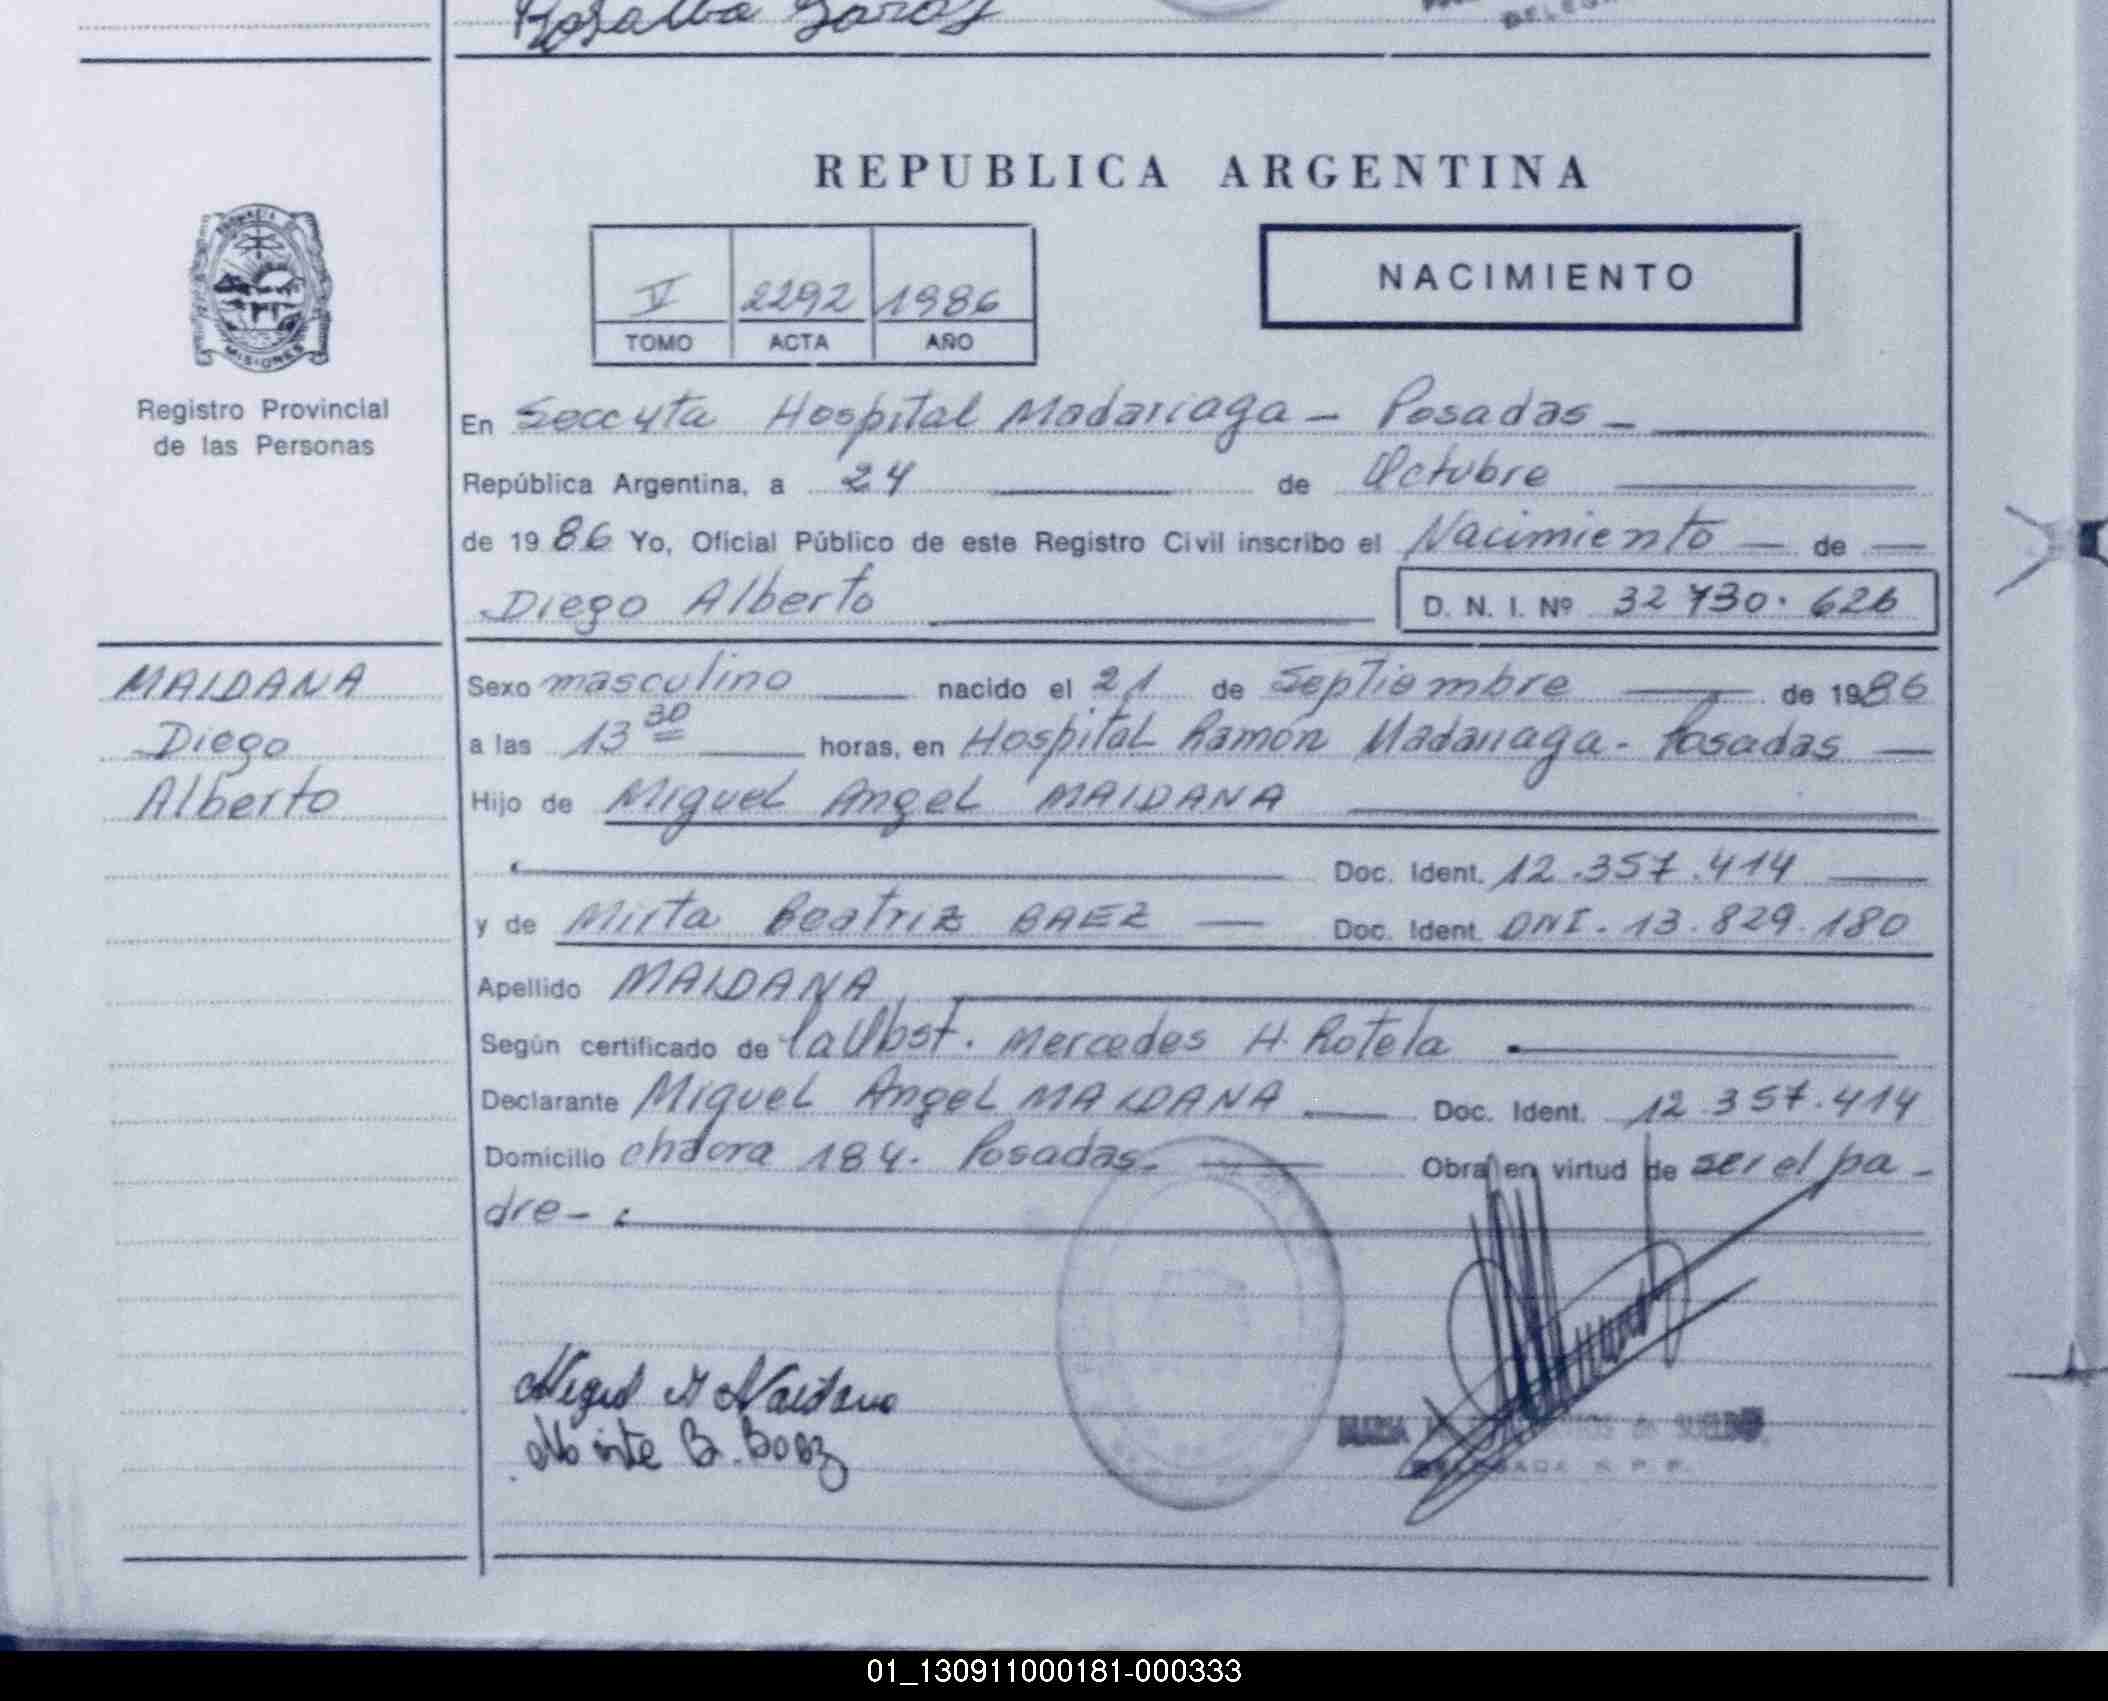 Rosalba
REPUBLICA ARGENTINA
NACIMIENTO
V 2292 1986
TOMO ACTA AÑO
MISIONES
Registro Provincial
de las Personas
En Seccyta Hospital Madariaga - Posadas -
República Argentina, a 24 de Octubre
de 1986 Yo, Oficial Público de este Registro Civil inscribo el Nacimiento - de -
Diego Alberto D. N. I. Nº 32 730. 626
MAIDANA
Diego
Alberto
Sexo masculino nacido el 21 de Septiembre de 1986
a las 13 30 horas, en Hospital Ramón Madariaga - Posadas -
Hijo de Miguel Angel MAIDANA
Doc. Ident. 12.357.414
y de Mirta Beatriz BAEZ - Doc. Ident. DNI. 13.829.180
Apellido MAIDANA
Según certificado de la Obst. Mercedes H. Rotela
Declarante Miguel Angel MAIDANA Doc. Ident. 12.357.414
Domicilio chacra 184. Posadas. Obra en virtud de ser el pa-
dre-
Miguel A Maidana
Mirta B. Baez
01_130911000181-000333